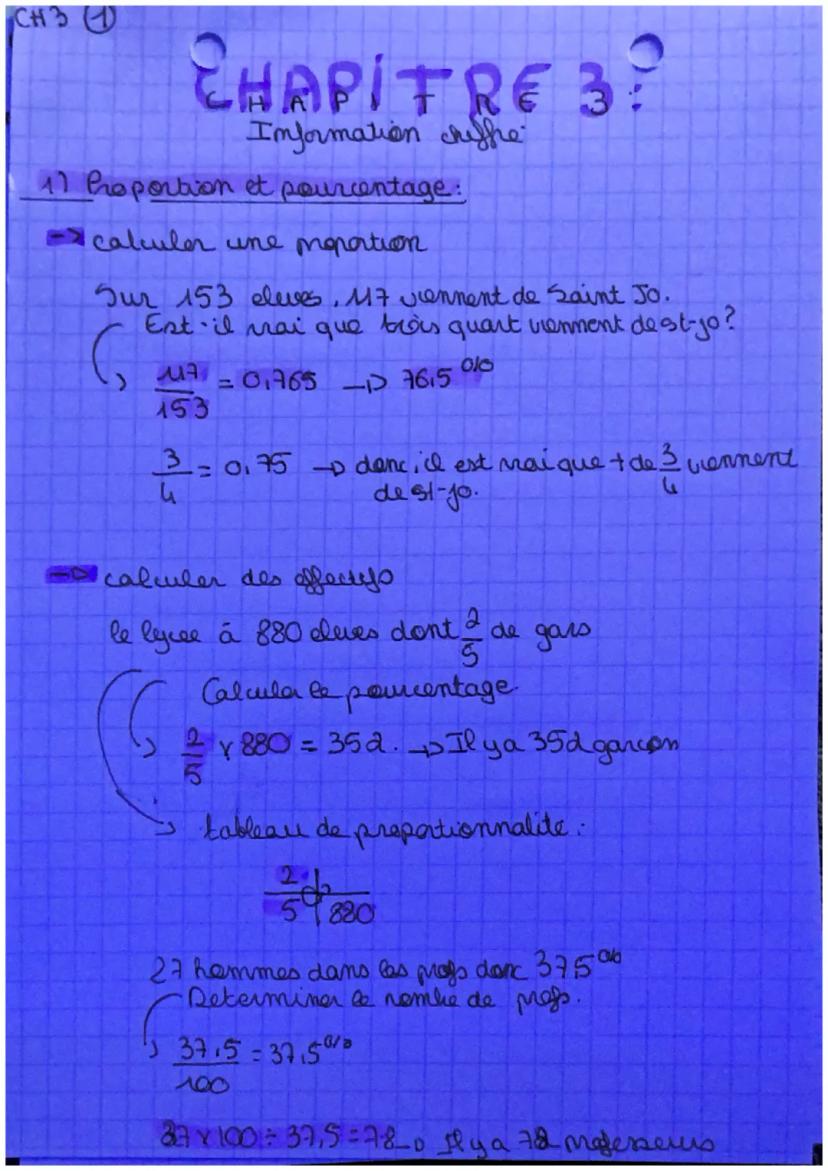 CH 3 ①
CHAPITRE 3:
CHAPITRE 3
Information chiffré
1) Proportion et pourcentage:
-> calculer une proportion
Sur 153 eleves, 117 viennent de Saint Jo.
Est-il vrai que trois quart viennent de st-jo?
117/153 = 0,765 → 76,5 %
3/4 = 0,75 → donc, il est vrai que + de 3/4 viennent
de st-jo.
→ calculer des effectifs
le lycee à 880 eleves dont 2/5 de gars
Calculer le pourcentage
2/5 x 880 = 352. → Il y a 352 garçon
tableau de proportionnalite:
2
5 880
27 hommes dans les profs donc 37,5 %
Determiner le nombre de profs.
37,5/100 = 37,5 %
x 100 ÷ 37,5 = → Il y a professeurs